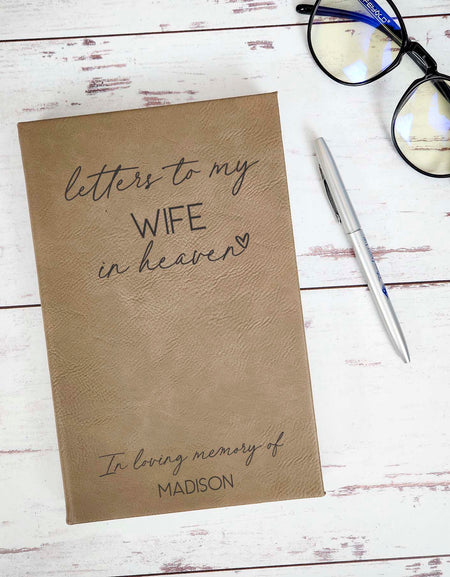 letters to my
WIFE
in heaven
In loving memory of
MADISON